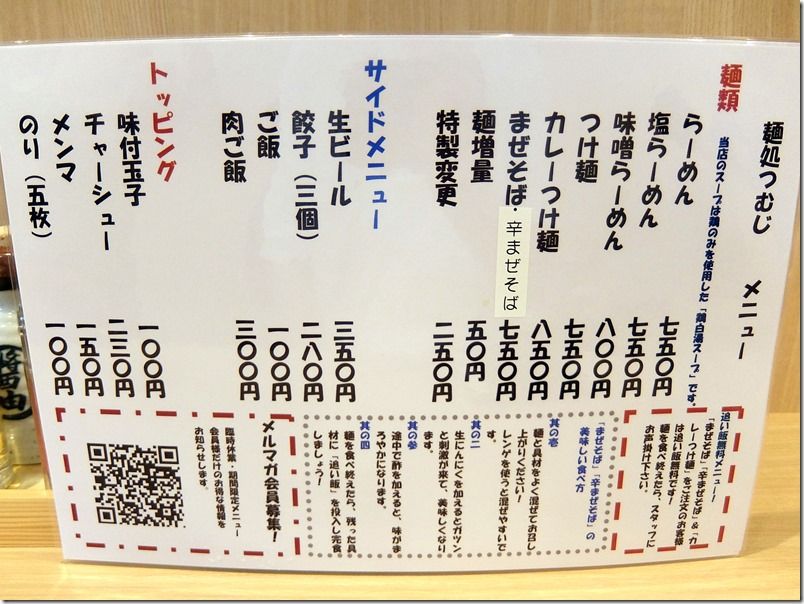 麺処つむじ　メニュー
麺類
当店のスープは鶏のみを使用した「鶏白湯スープ」です。
らーめん　七五〇円
塩らーめん　七五〇円
味噌らーめん　八〇〇円
つけ麺　七五〇円
カレーつけ麺　八五〇円
まぜそば・辛まぜそば　七五〇円
麺増量　五〇円
特製変更　二五〇円
サイドメニュー
生ビール　三五〇円
餃子（三個）　二八〇円
ご飯　一〇〇円
肉ご飯　三〇〇円
トッピング
味付玉子　一〇〇円
チャーシュー　二三〇円
メンマ　一五〇円
のり（五枚）　一〇〇円
追い飯無料メニュー！
「まぜそば」「辛まぜそば」＆「カ
レーつけ麺」をご注文のお客様
は追い飯無料です！
麺を食べ終えたら、スタッフに
お声掛け下さい。
「まぜそば」「辛まぜそば」の
美味しい食べ方
其の壱
麺と具材をよく混ぜてお召し
上がりください！
レンゲを使うと混ぜやすいで
す。
其の二
生にんにくを加えるとガツン
と刺激が来て、美味しくなり
ます。
其の参
途中で酢を加えると、味がま
ろやかになります。
其の四
麺を食べ終えたら、残った具
材に「追い飯」を投入し完食
しましょう！
メルマガ会員募集！
臨時休業・期間限定メニュー
会員様だけのお得な情報を
お知らせします。
醤油